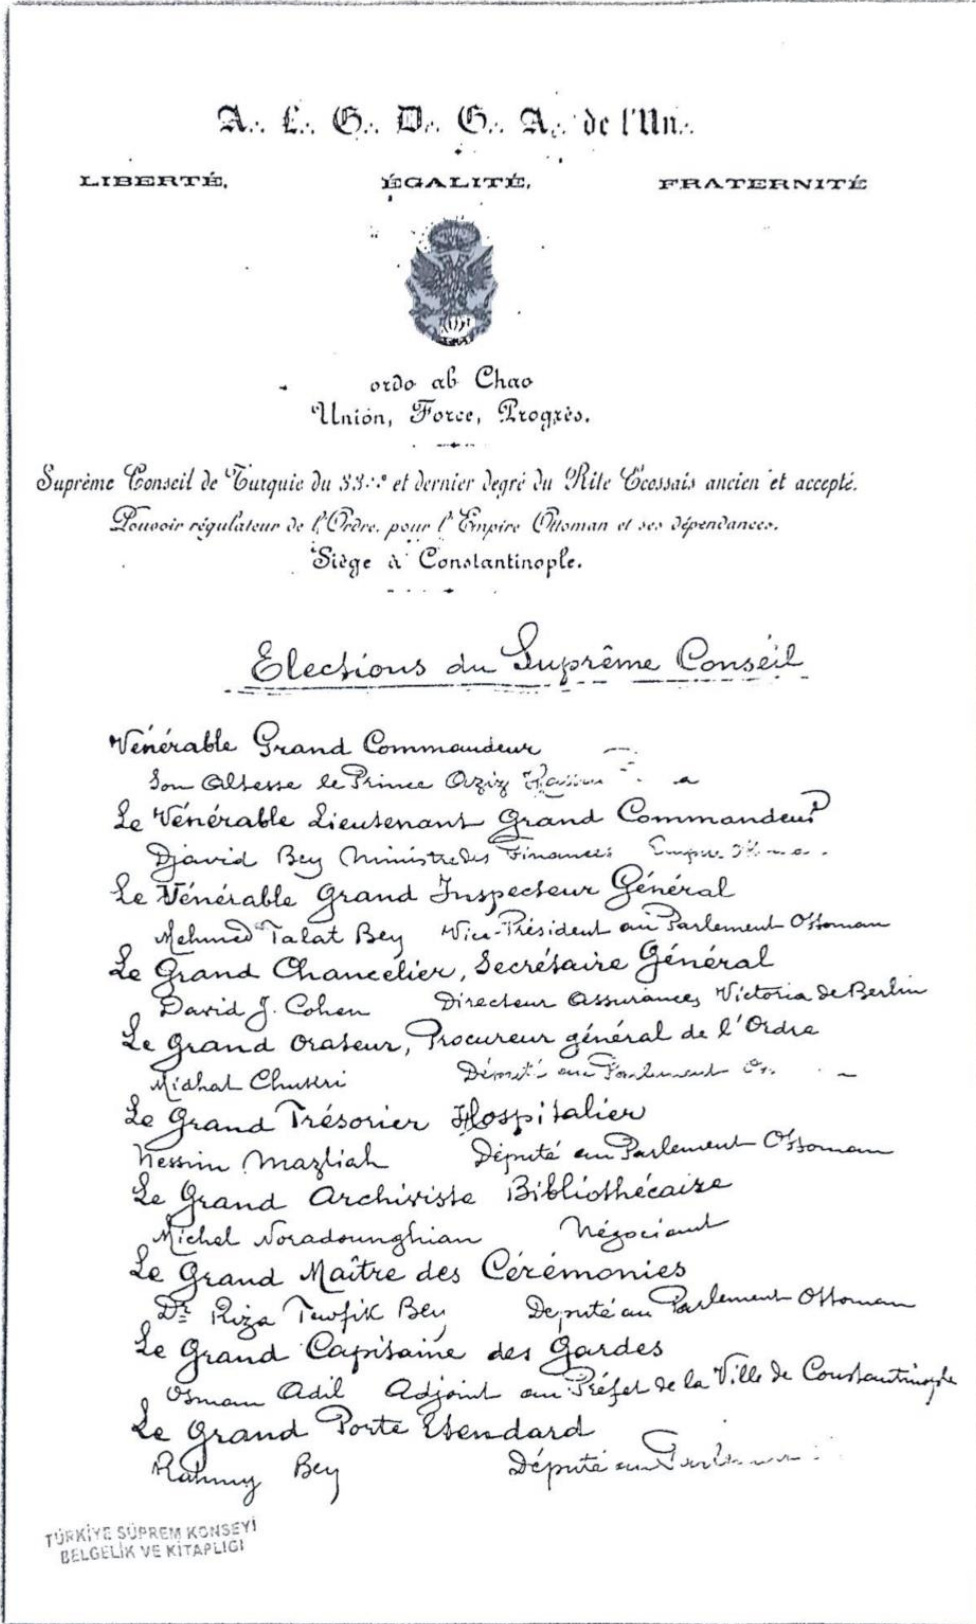 A∴ L∴ G∴ D∴ G∴ A∴ de l'Un∴
LIBERTÉ, ÉGALITÉ, FRATERNITÉ
ordo ab Chao
Union, Force, Progrès.
Suprême Conseil de Turquie du 33∴e et dernier degré du Rite Ecossais ancien et accepté.
Pouvoir régulateur de l'Ordre. pour l'Empire Ottoman et ses dépendances.
Siège à Constantinople.
Elections du Suprême Conseil
Vénérable Grand Commandeur
Son Altesse le Prince Aziz Hassan
Le Vénérable Lieutenant Grand Commandeur
Djavid Bey Ministre des Finances Empire
Le Vénérable Grand Inspecteur Général
Mehmed Talat Bey Vice-Président au Parlement Ottoman
Le Grand Chancelier, Secrétaire Général
David J. Cohen Directeur Assurances Victoria de Berlin
Le Grand Orateur, Procureur général de l'Ordre
Midhat Chukri Député au Parlement
Le Grand Trésorier Hospitalier
Nessim Mazliah Député au Parlement Ottoman
Le Grand Archiviste Bibliothécaire
Michel Noradounghian Négociant
Le Grand Maître des Cérémonies
Dr Riza Tewfik Bey Député au Parlement Ottoman
Le Grand Capitaine des Gardes
Osman Adil Adjoint au Préfet de la Ville de Constantinople
Le Grand Porte Etendard
Rahmy Bey Député au Parlement
TÜRKİYE SÜPREM KONSEYİ
BELGELİK VE KİTAPLIGI